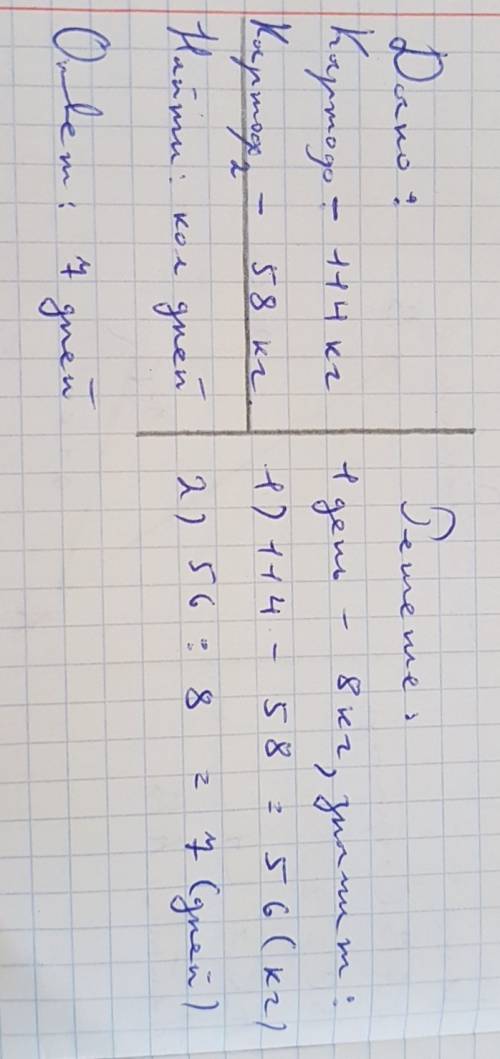 Дано:
Картоф. - 114 кг
Картоф2 - 58 кг.
Найти: кол дней
Ответ: 7 дней
Решение:
1 день - 8 кг, значит:
1) 114 - 58 = 56 (кг)
2) 56 : 8 = 7 (дней)